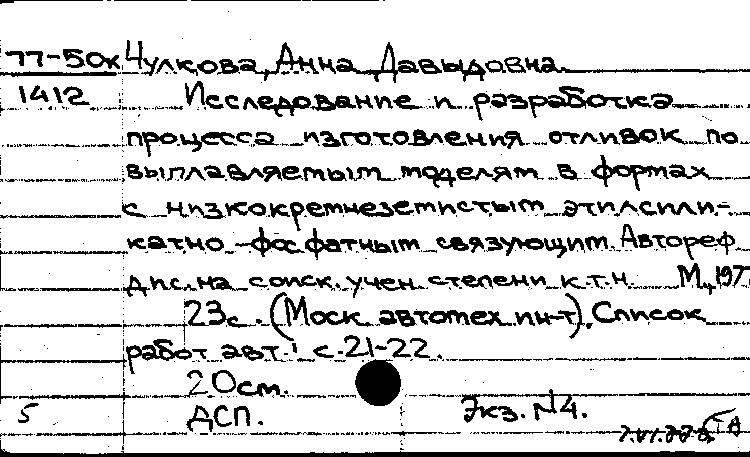 77-50к Чулкова, Анна Давыдовна.
1412 Исследование и разработка
процесса изготовления отливок по
выплавляемым моделям в формах
с низкокремнеземистым этилсили-
катно-фосфатным связующим. Автореф
дис. на соиск. учен. степени к.т.н. М., 197
23с. (Моск. автомех. ин-т). Список
работ авт.: с.21-22.
20см.
5 ДСП. Экз. N4.